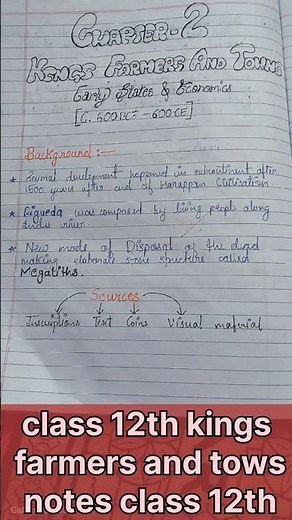 CHAPTER-2
KINGS FARMERS AND TOWNS
Early States & Economics
[C. 600 BCE - 600 CE]
Background :-
* Several development happened in subcontinent after
1500 years after end of Harappan Civilisation.
* Rigveda was composed by living people along
Indus river.
* New mode of Disposal of the dead
making elaborate stone structure called
Megaliths.
Sources
Inscriptions Text Coins Visual material
class 12th kings
farmers and tows
notes class 12th